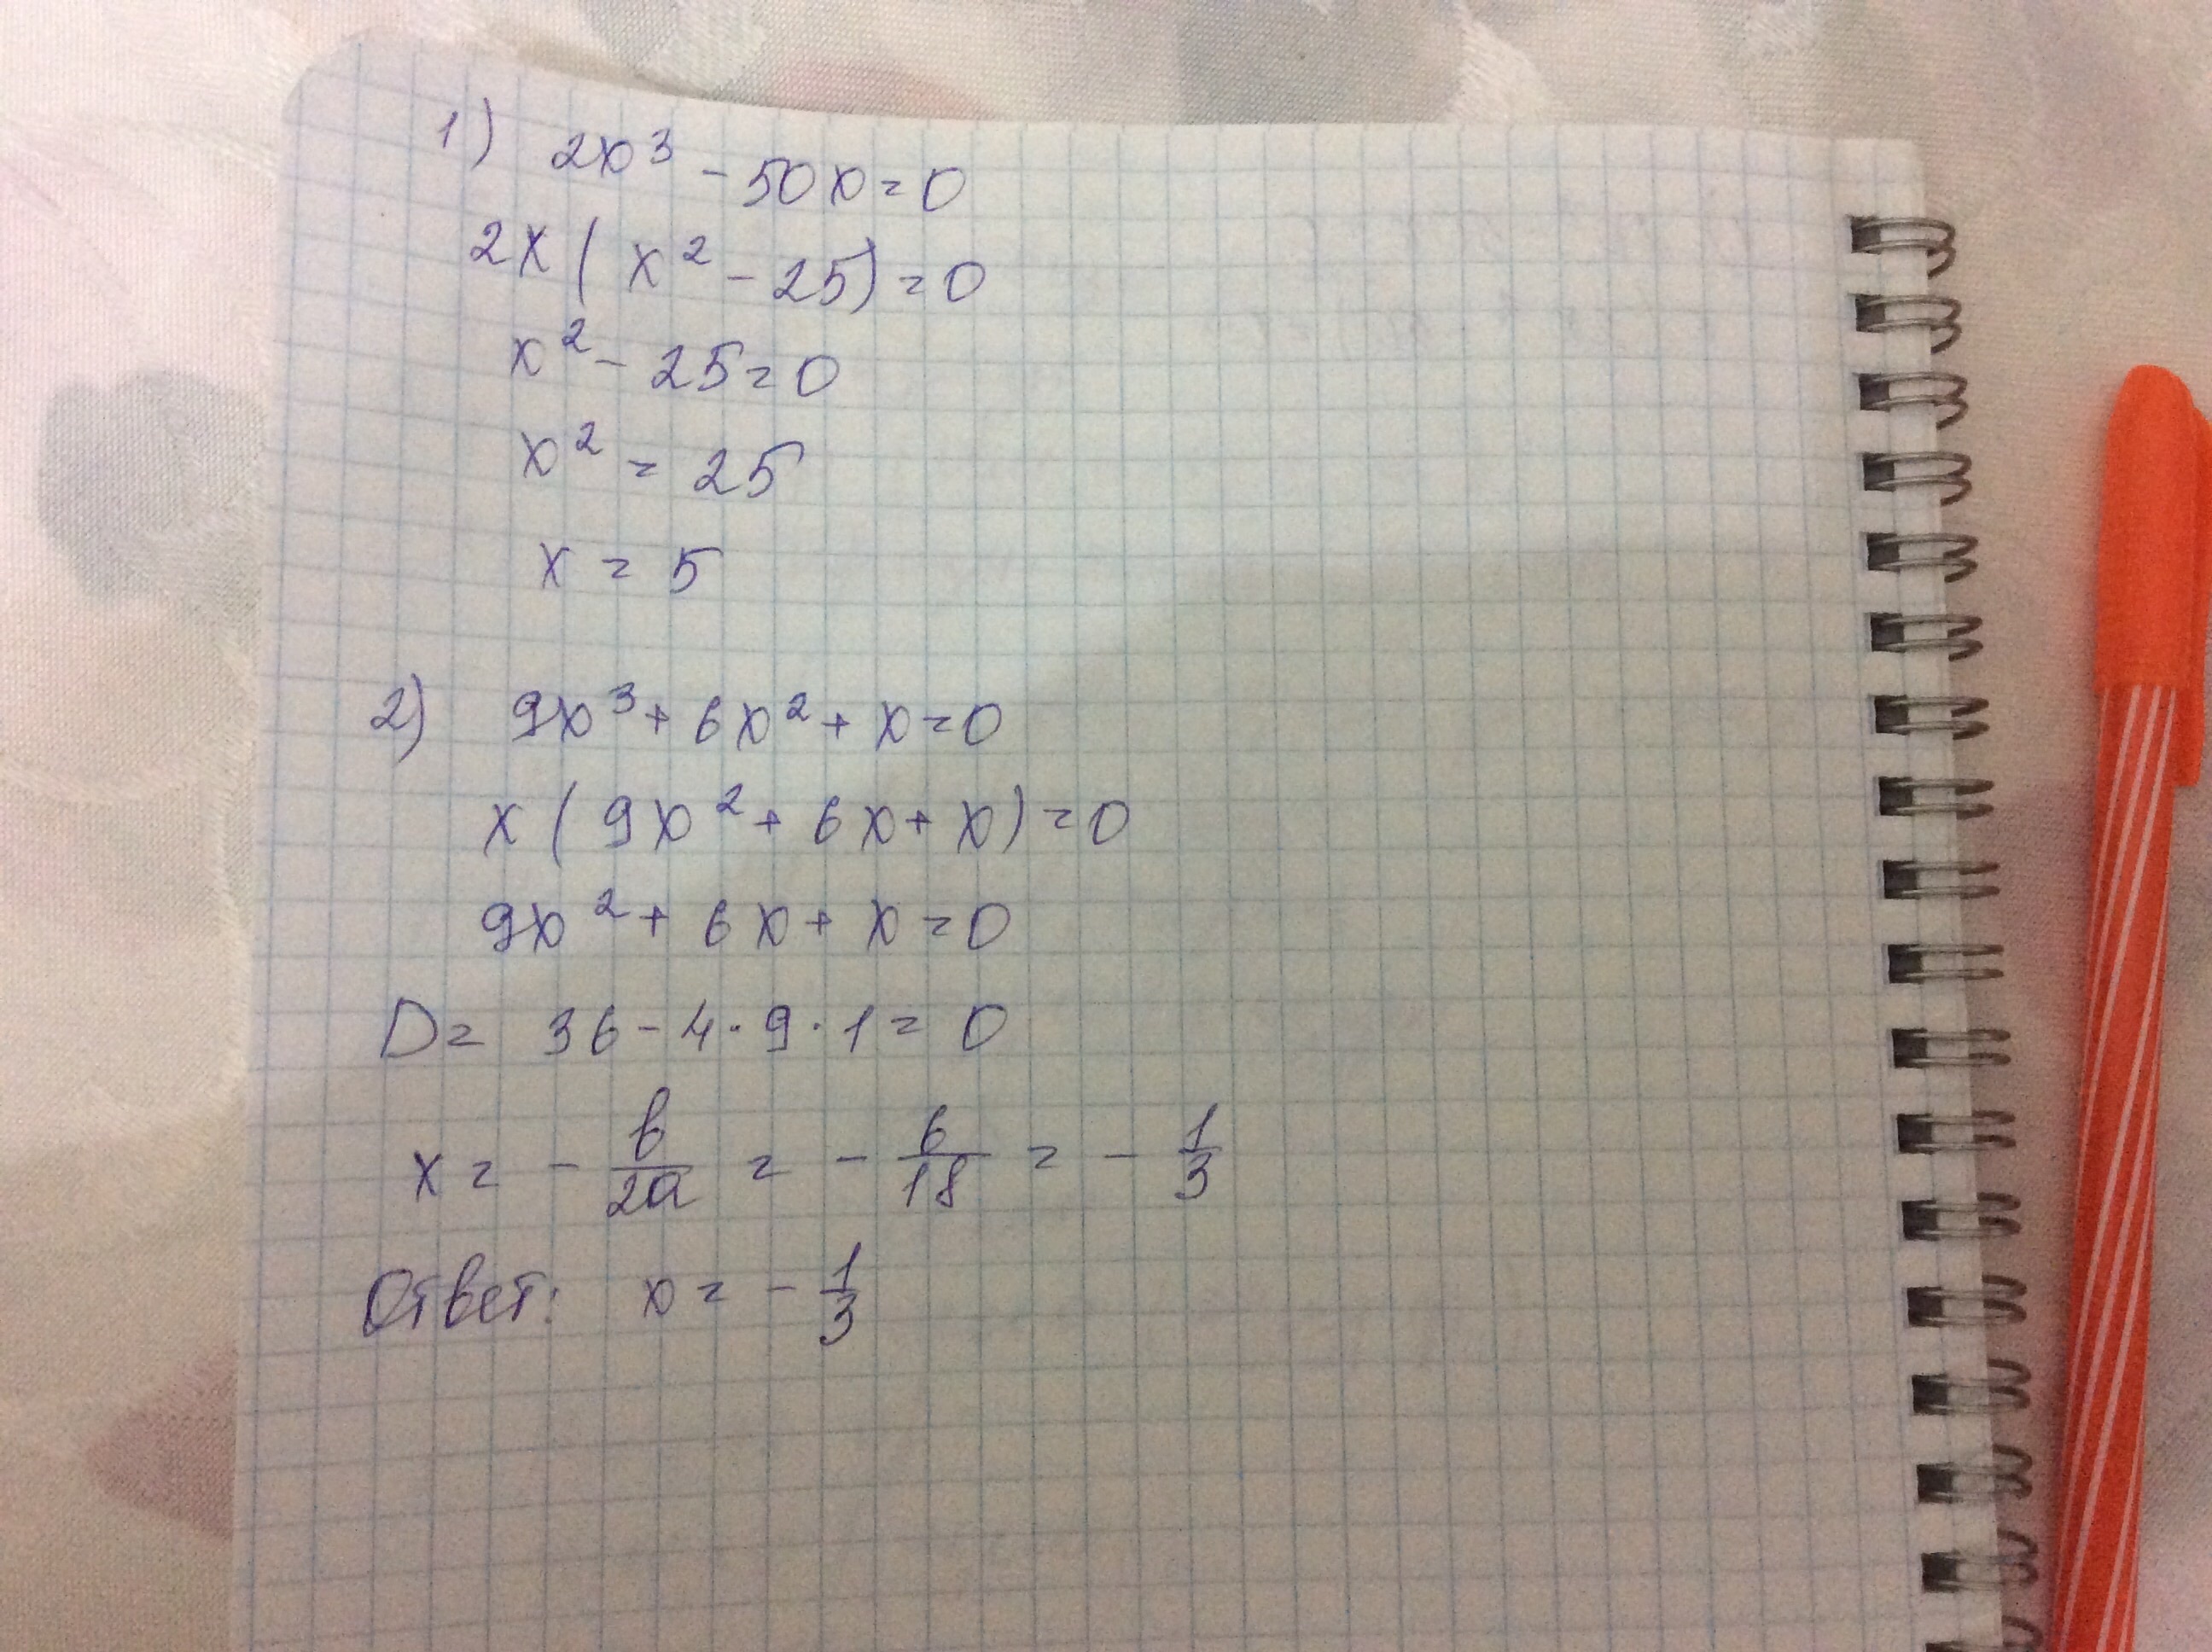 1) 2x³ - 50x = 0
2x (x² - 25) = 0
x² - 25 = 0
x² = 25
x = 5
2) 9x³ + 6x² + x = 0
x (9x² + 6x + x) = 0
9x² + 6x + x = 0
D = 36 - 4 · 9 · 1 = 0
x = - b/2a = - 6/18 = - 1/3
Ответ: x = - 1/3